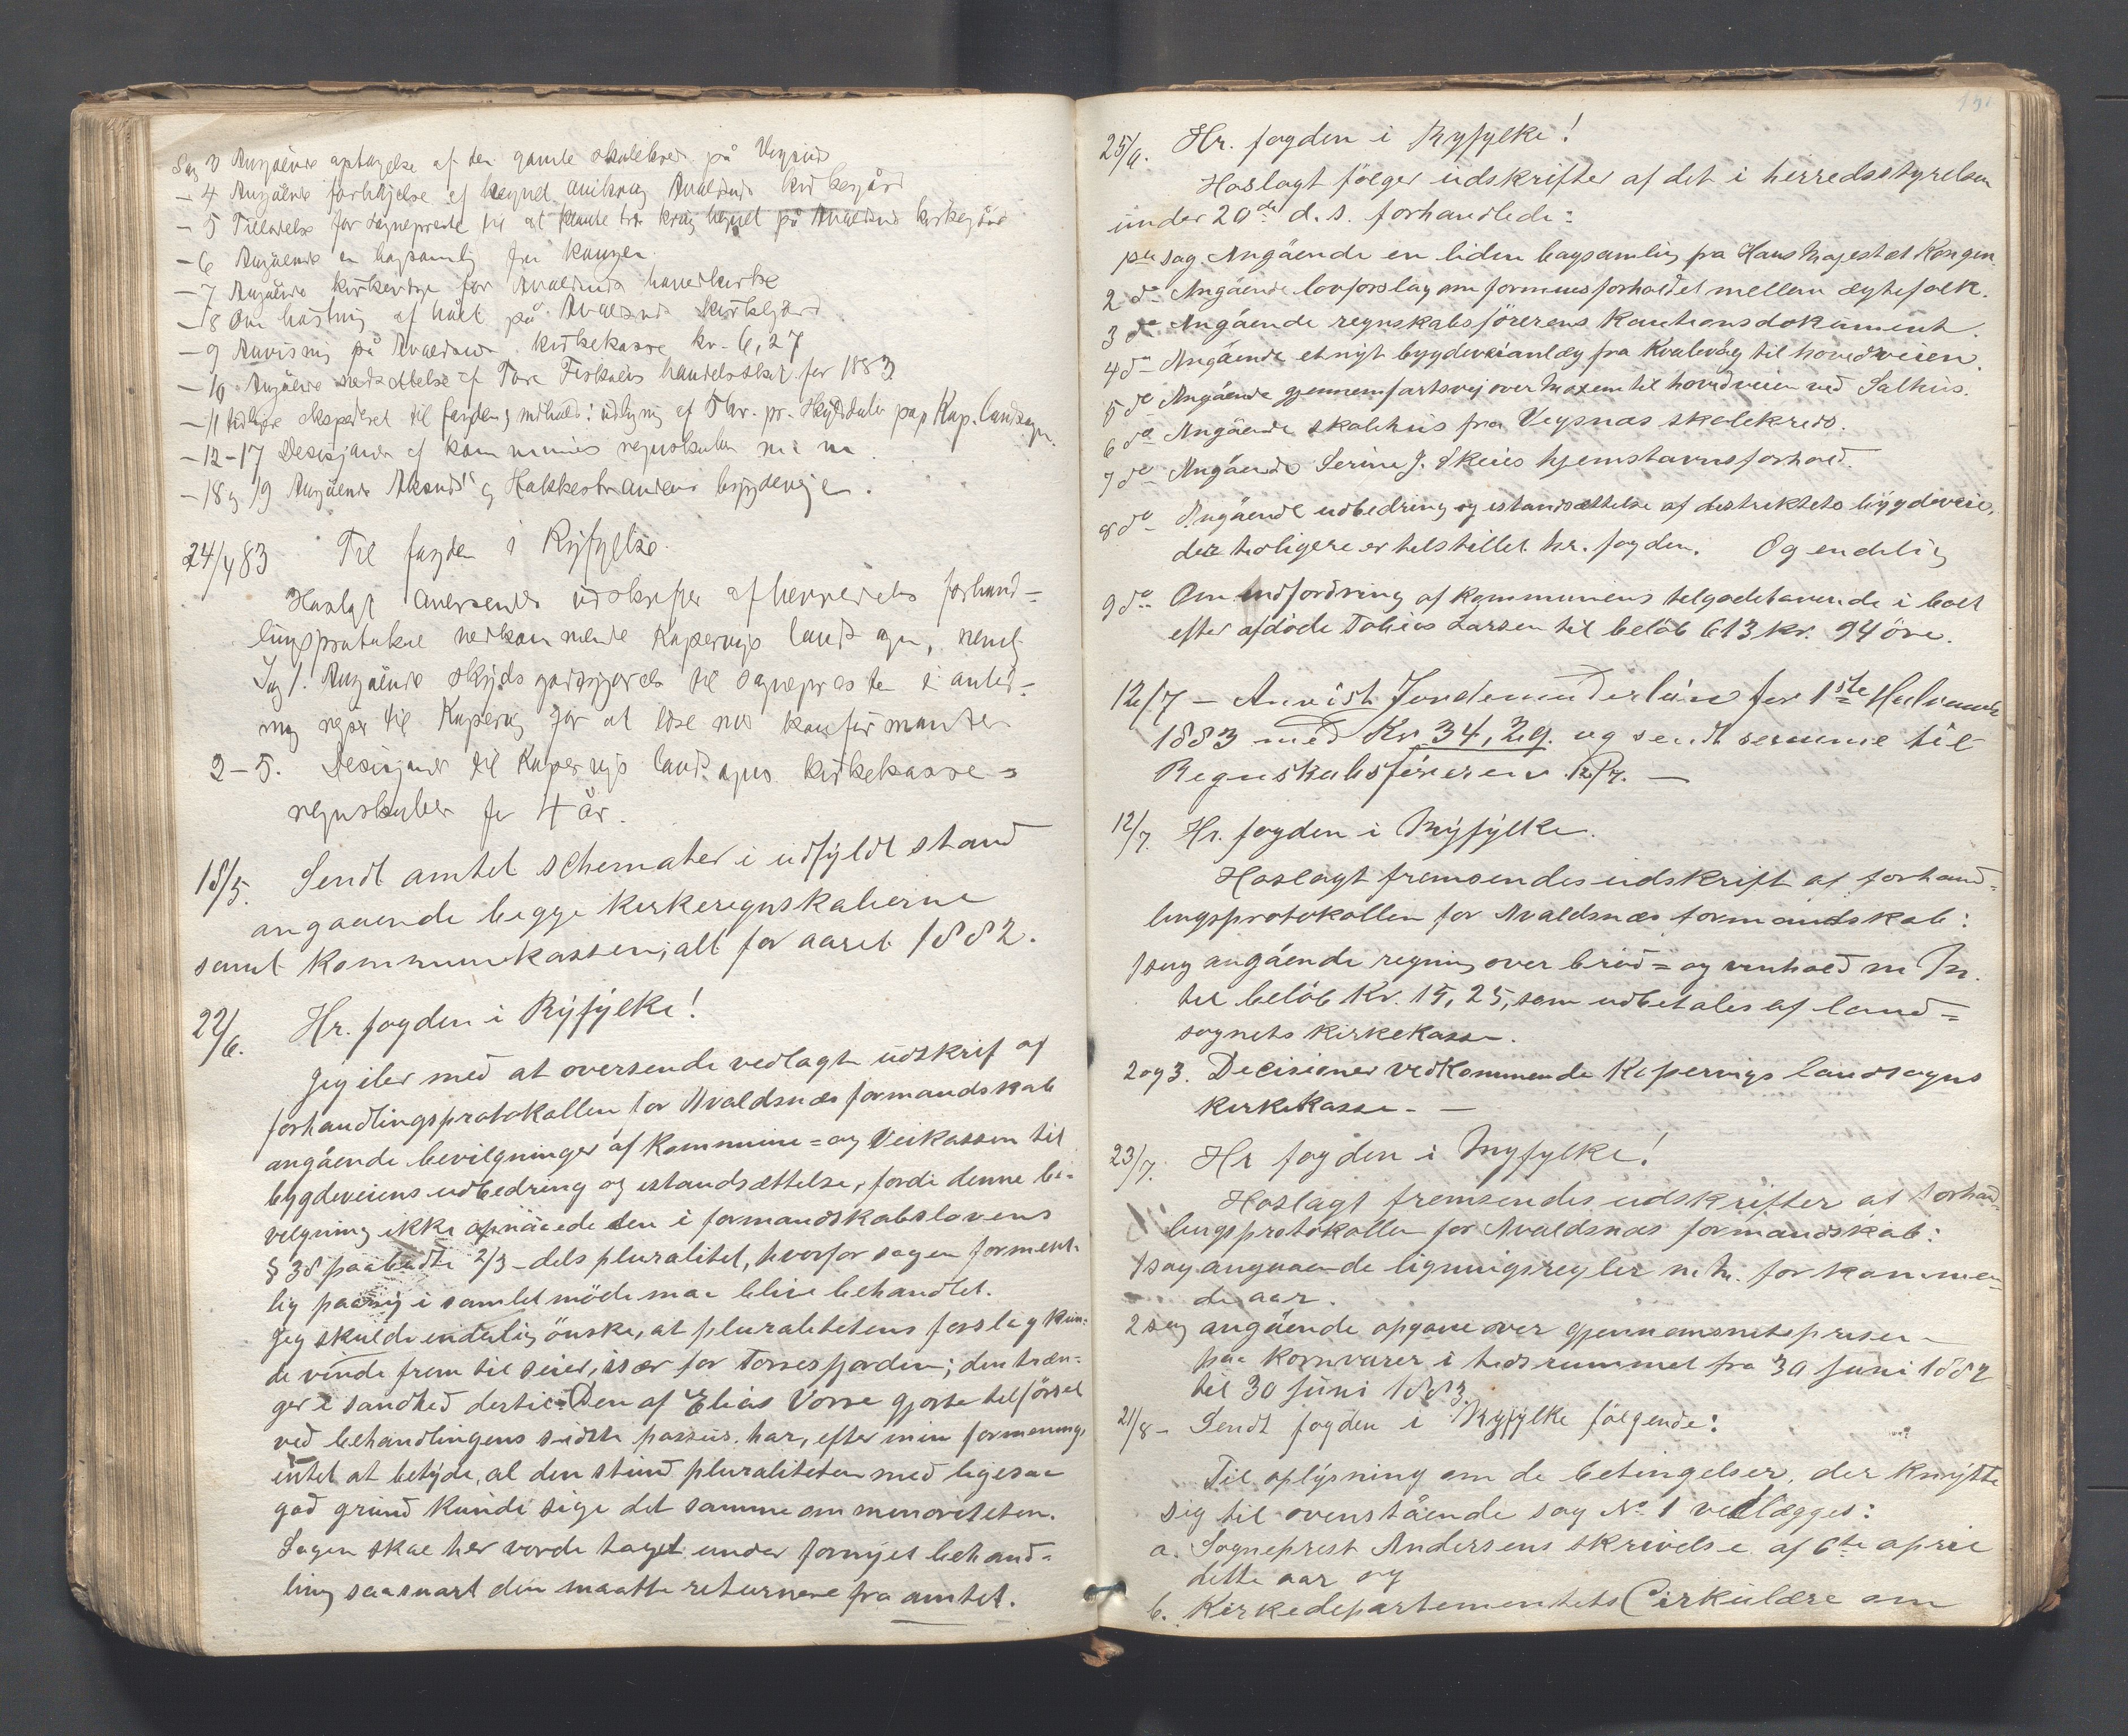 Sag 3 Angående optagelse af den gamle skolekreds på Vegsund
- 4 Angående forhøjelse af hegnet omkring Avaldsnes kirkegård
- 5 Tilladelse for sogneprest til at plante træ kring hegnet på Avaldsnes kirkegård
- 6 Angående en bogsamling fra Kongen
- 7 Angående kirkeverge for Avaldsnes hovedkirke
- 8 Om høstning af hået på Avaldsnes kirkegård
- 9 Anvisning på Avaldsnes kirkekasse kr. 6,27
- 10 Angående nedsettelse af Tore Fiskaaens handelsskat for 1883
- 11 tidligere expederet til fogden, indhold: udligning af 5 kr. pr. Skylddaler paa Kop. landsogn.
- 12-17 Desisjoner af kommunens regnskaber m. m.
- 18 og 19 Angående og Hakkestrandens bygdeveje.
24/4 83 Til fogden i Ryfylke.
Hoslagt oversendes udskrifter af herredets forhand-
lingsprotokol vedkommende Kopervigs landsogn, nemlig
Sag 1. Angående skydsgodtgjørelse til sognepresten i anled-
ning rejser til Kopervig for at læse med konfirmanter
2-5. Desisjoner til Kopervigs landsogns kirkekasse-
regnskaber for 4 år.
18/5. Sendt amtet schemater i udfyldt stand
angaaende begge kirkeregnskaberne
samt kommunekassen; alt for aaret 1882.
22/6. Hr. fogden i Ryfylke!
Jeg iler med at oversende vedlagte udskrif af
forhandlingsprotokollen for Avaldsnæs formandskab
angående bevilgninger af kommune- og Veikassen til
bygdeveiens udbedring og istandsættelse, fordi denne be-
vilgning ikke opnåede den i formandskabslovens
§ 38 paabudte 2/3-dels pluralitet, hvorfor sagen forment-
lig paany i samlet möde maa blive behandlet.
Jeg skulde inderlig önske, at pluralitetens forslag kun-
de vinde frem til seier, især for Torresfjorden; den træn-
ger i sandhed dertil. Den af Elias Vorre gjorte tilförsel
ved behandlingens sidste passus har, efter min formening,
intet at betyde, al den stund pluraliteten med ligesaa
god grund kunde sige det samme om minoriteten.
Sagen skal her vorde taget under fornyet behand-
ling saasnart den maatte returnere fra amtet.
25/6. Hr. fogden i Ryfylke!
Hoslagt fölger udskrifter af det i herredsstyrelsen
under 20de d. s. forhandlede:
1ste sag Angående en liden bogsamling fra Hans Majestæt Kongen.
2 do Angående lovforslag om formuesforholdet mellem ægtefolk.
3 do Angående regnskabsförerens kautionsdokument.
4 do Angående et nyt bygdeveianlæg fra Kvalevåg til hovedveien.
5 do Angående gjennemfartsvej over til hovedveien ved Salhus.
6 do Angående skolehus fra Vegsnæs skolekreds.
7 do Angående Serine J. Skeies hjemstavnsforhold.
8 do Angående udbedring og istandsættelse af distriktets bygdeveie,
der tidligere er tilstillet hr. fogden. Og endelig
9 do Om indfordring af kommunens tilgodehavende i boet
efter afdöde Tobias Larsen til belöb 613 kr. 94 öre.
12/7 - Anvist Jordemoderlön for 1ste Halvaar
1883 med Kr. 34,29. og sendt samme til
Regnskabsföreren 12/7. -
12/7. Hr. fogden i Ryfylke.
Hoslagt fremsendes udskrift af forhand-
lingsprotokollen for Avaldsnæs formandskab:
1 sag angående regning over bröd- og vinhold m. M.
til belöb Kr. 15,25, som udbetales af land-
sognets kirkekasse.
2 og 3. Decisioner vedkommende Kopervigs landsogns
kirkekasse. -
23/7. Hr fogden i Ryfylke!
Hoslagt fremsendes udskrifter af forhand-
lingsprotokollen for Avaldsnæs formandskab:
1 sag angaaende ligningsregler m. M. for kommen-
de aar.
2 sag angående opgave over gjennemsnitspriser
paa kornvarer i tidsrummet fra 30 Juni 1882
til 30 Juni 1883.
21/8 - Sendt fogden i Ryfylke fölgende:
Til oplysning om de betingelser, der knytte
sig til ovenstående sag No 1 vedlægges:
a. Sogneprest Andersens skrivelse af 6te april
dette aar og
b. Kirkedepartementets Cirkulære om